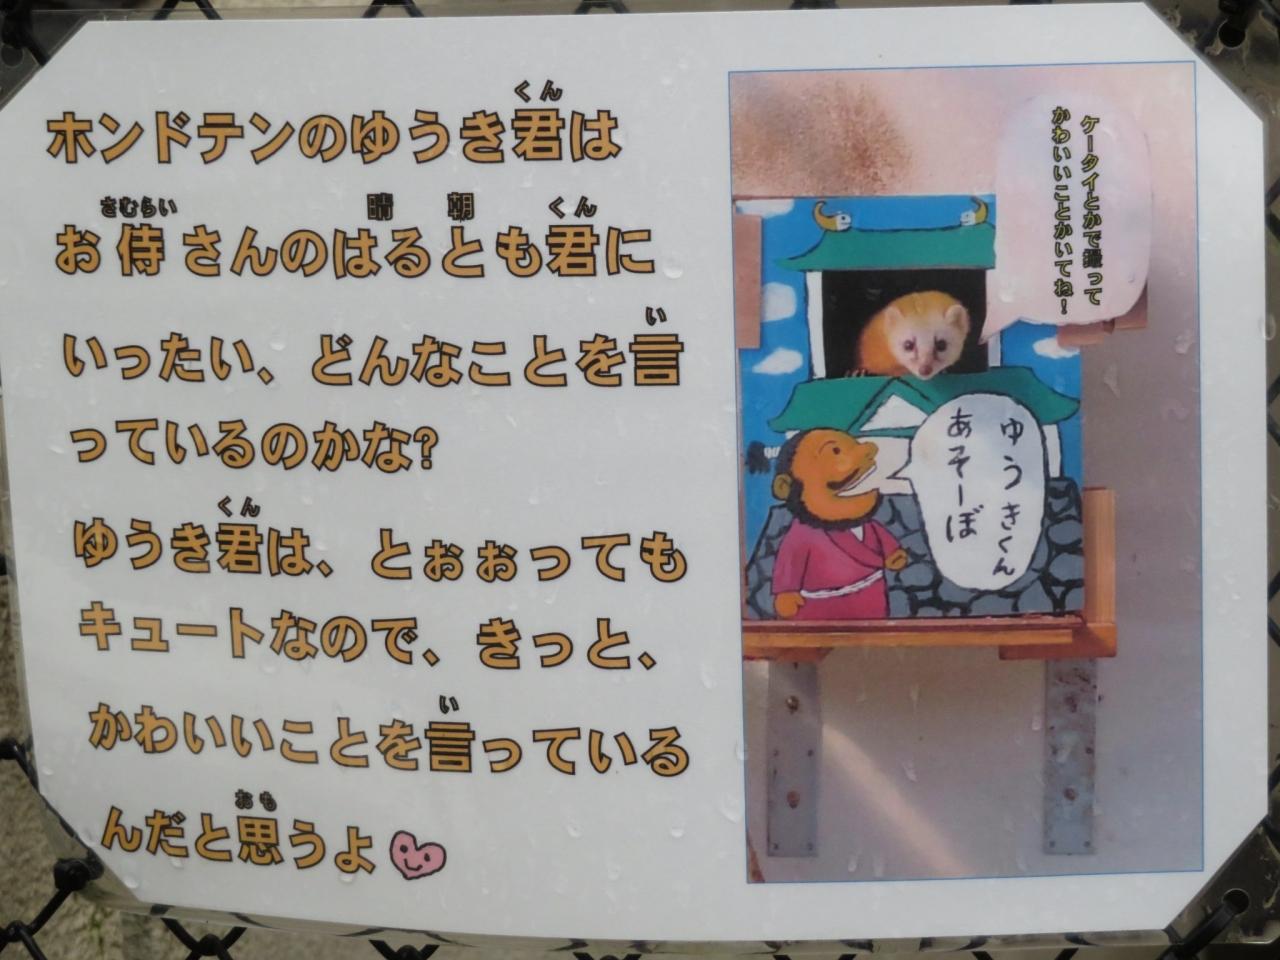 ホンドテンのゆうき君は
くん
お侍さんのはるとも君に
さむらい 晴 朝 くん
いったい、どんなことを言
い
っているのかな?
ゆうき君は、とぉぉっても
くん
キュートなので、きっと、
かわいいことを言っている
い
んだと思うよ
おも
ケータイとかで撮って
かわいいことかいてね!
ゆうきくん
あそーぼ